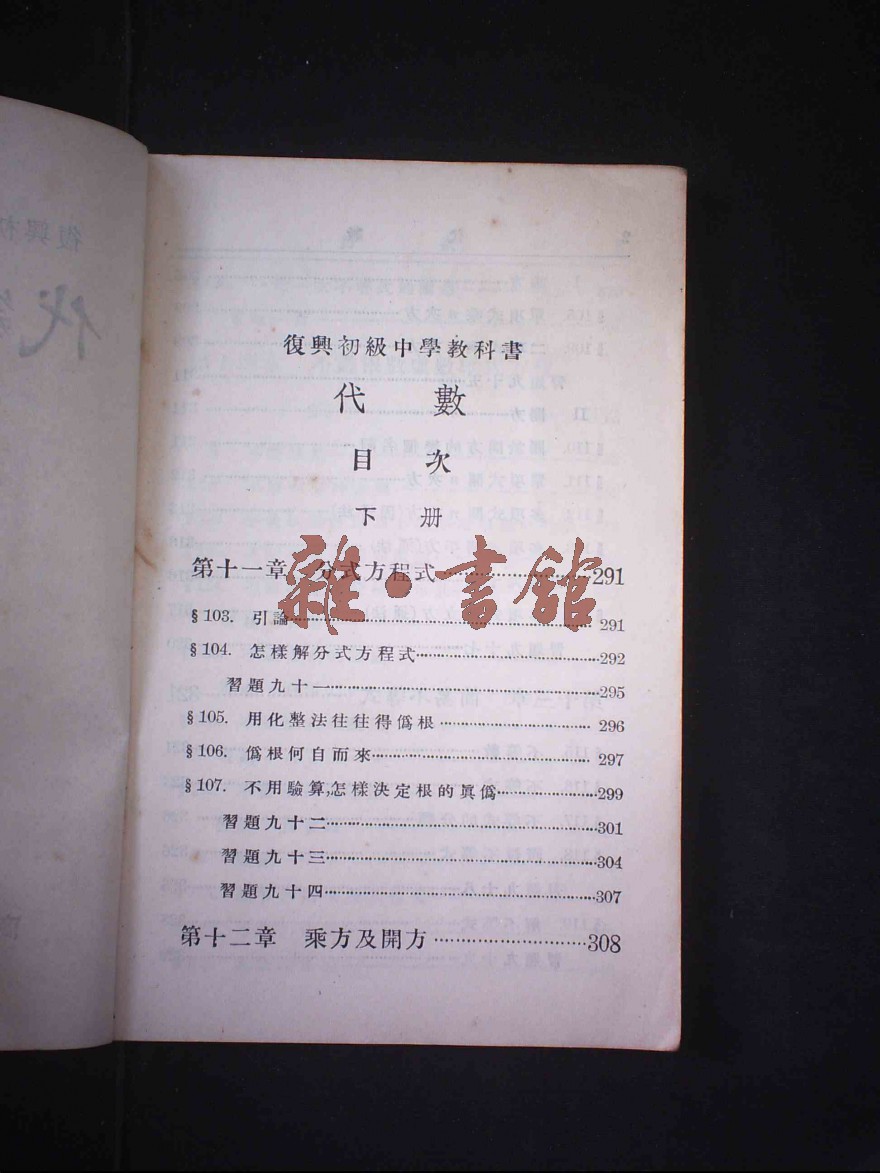 復興初級中學教科書
代 數
目 次
下 册
第十一章 分式方程式 291
§103. 引論 291
§104. 怎樣解分式方程式 292
習題九十一 295
§105. 用化整法往往得僞根 296
§106. 僞根何自而來 297
§107. 不用驗算,怎樣決定根的眞僞 299
習題九十二 301
習題九十三 304
習題九十四 307
第十二章 乘方及開方 308
雜·書館
復興初
代